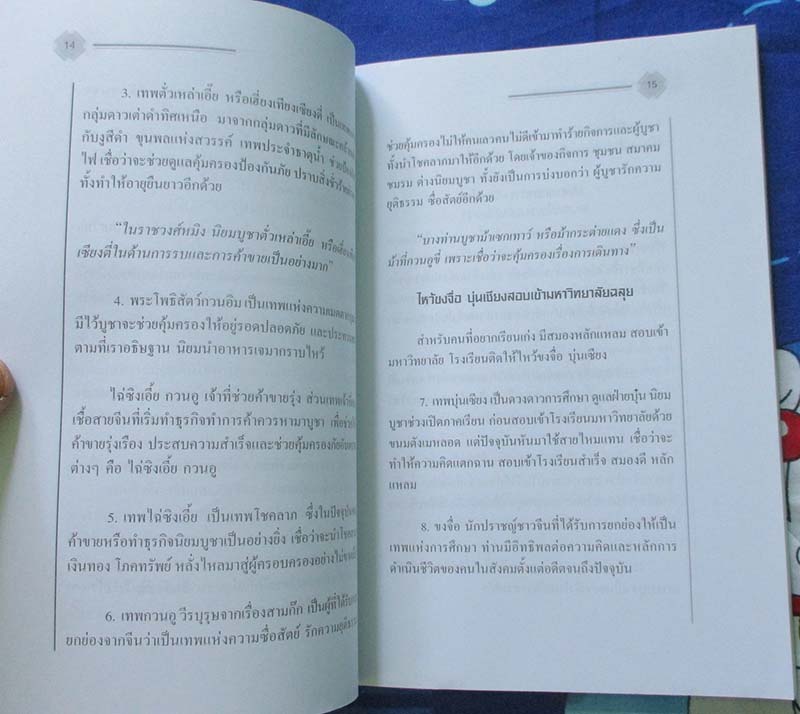 14
3. เทพตั่วเหล่าเอี๊ย หรือเฮี่ยงเทียงเซียงตี่
กลุ่มดาวเต่าดำทิศเหนือ มาจากกลุ่มดาวที่มีลักษณะ
กับงูสีดำ ขุนพลแห่งสวรรค์ เทพประจำธาตุน้ำ
ไฟ เชื่อว่าจะช่วยดูแลคุ้มครองป้องกันภัย
ทั้งทำให้อายุยืนยาวอีกด้วย
“ในราชวงศ์หมิง นิยมบูชาตั่วเหล่าเอี๊ย
เซียงตี่ในด้านการรบและการค้าขายเป็นอย่างมาก”
4. พระโพธิสัตว์กวนอิม เป็นเทพแห่งความเมตตา
มีไว้บูชาจะช่วยคุ้มครองให้อยู่รอดปลอดภัย
ตามที่เราอธิษฐาน นิยมนำอาหารเจมากราบไหว้
ไฉ่ซิงเอี้ย กวนอู เจ้าที่ช่วยค้าขายรุ่ง
เชื้อสายจีนที่เริ่มทำธุรกิจทำการค้าควรหามาบูชา
ค้าขายรุ่งเรือง ประสบความสำเร็จและช่วยคุ้มครองภัย
ต่างๆ คือ ไฉ่ซิงเอี้ย กวนอู
5. เทพไฉ่ซิงเอี้ย เป็นเทพโชคลาภ
ค้าขายหรือทำธุรกิจนิยมบูชาเป็นอย่างยิ่ง
เงินทอง โภคทรัพย์ หลั่งไหลมาสู่ผู้ครอบครอง
6. เทพกวนอู วีรบุรุษจากเรื่องสามก๊ก
ยกย่องจากจีนว่าเป็นเทพแห่งความซื่อสัตย์
15
ช่วยคุ้มครองไม่ให้คนเลวคนไม่ดีเข้ามาทำร้ายกิจการและผู้บูชา
ทั้งนำโชคลาภมาให้อีกด้วย โดยเจ้าของกิจการ ชุมชน สมาคม
ชมรม ต่างนิยมบูชา ทั้งยังเป็นการบ่งบอกว่า ผู้บูชารักความ
ยุติธรรม ซื่อสัตย์อีกด้วย
“บางท่านบูชาม้าเซกเทาว์ หรือม้ากระต่ายแดง ซึ่งเป็น
ม้าที่กวนอูขี่ เพราะเชื่อว่าจะคุ้มครองเรื่องการเดินทาง”
ไหว้ขงจื่อ บุ่นเชียงสอบเข้ามหาวิทยาลัยฉลุย
สำหรับคนที่อยากเรียนเก่ง มีสมองหลักแหลม สอบเข้า
มหาวิทยาลัย โรงเรียนติดให้ไหว้ขงจื่อ บุ่นเชียง
7. เทพบุ่นเชียง เป็นดวงดาวการศึกษา ดูแลฝ่ายบุ๋น นิยม
บูชาช่วงเปิดภาคเรียน ก่อนสอบเข้าโรงเรียนมหาวิทยาลัยด้วย
ขนมตังเมหลอด แต่ปัจจุบันหันมาใช้สายไหมแทน เชื่อว่าจะ
ทำให้ความคิดแตกฉาน สอบเข้าโรงเรียนสำเร็จ สมองดี หลัก
แหลม
8. ขงจื่อ นักปราชญ์ชาวจีนที่ได้รับการยกย่องให้เป็น
เทพแห่งการศึกษา ท่านมีอิทธิพลต่อความคิดและหลักการ
ดำเนินชีวิตของคนในสังคมตั้งแต่อดีตจนถึงปัจจุบัน